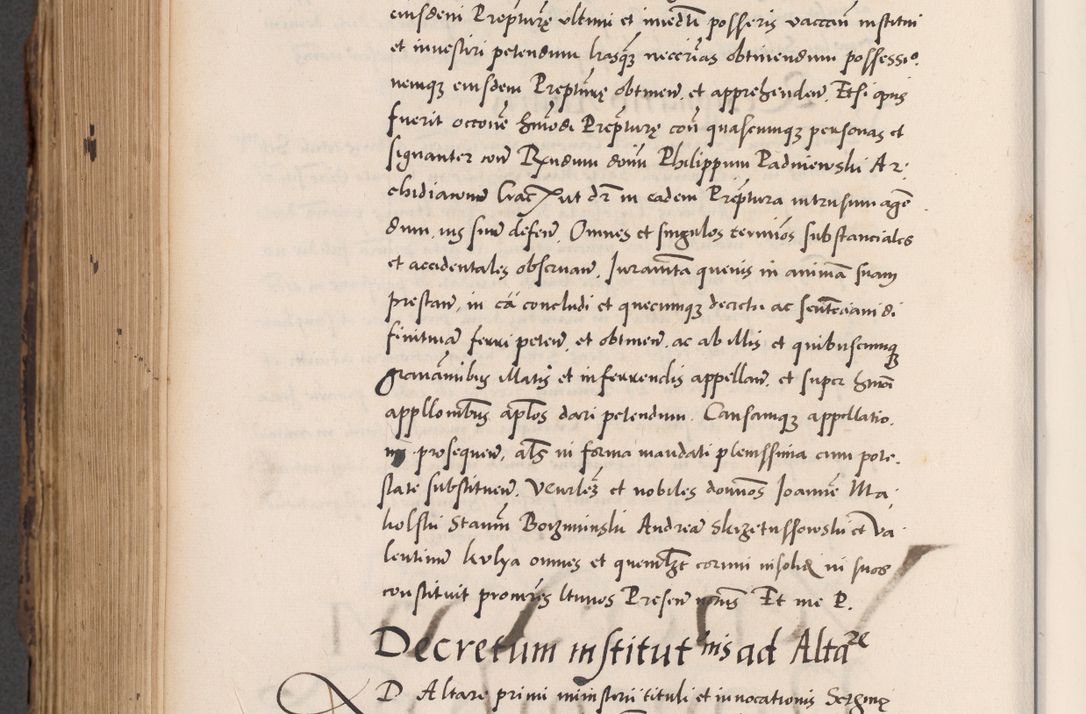 eiusdem Prepture ultimi et imediti possessoris vaccan institui
et investiri petendum lrasq necerias obtinendum possessio.
nemq eiusdem Prepture obtinen. et apprehenden. Et si opus
fuerit occone hmoi Prepture con quascumq personas et
signanter con Rndum domi Philippum Padniewski Ar.
chidiaconum Crac ut dr in eadem Preptura intrusum agen
dum, ius suum defen. Omnes et singulos terminos substanciales
et accidentales observan. Iuramta quevis in animam suam
prestan, in ca concludi et quecumq decreta ac sententiam di
finitivam ferri peten. et obtinen. ac ab illis et quibuscumq
gravaminibus illatis et inferrendis appellan. et super hmoi
appllonibus aplos dari petendum. Causamq appellatio.
prosequen. als in forma mandati plenissima cum pote.
state substituen. et nobiles domnos Ioannem Ma
Stanm Borzminski Andrea Skrzetussowski et Va
lentinum Kulya omnes et quemlibet eorum insolid in suos
constituit procures Presen nonis Et me P.
Decretum institutnis ad Altare
D Altare primi ministerii tituli et invocationis